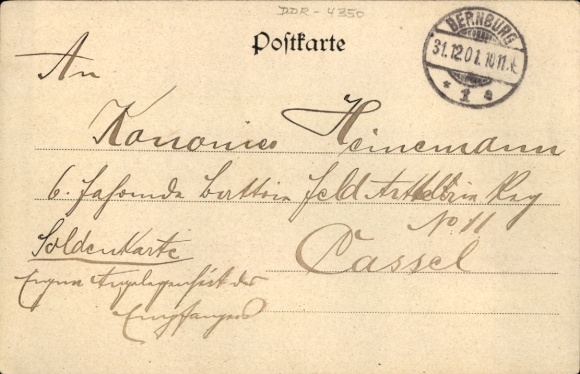 DDR-4350
Postkarte
BERNBURG
31.12.01. 10-11.V.
* 1 e
An
Kanonier Heinemann
6. fahrende Batterie Feld Artillerie Reg
No 11
Soldenkarte
Cassel
Eigene Angelegenheit des
Empfängers